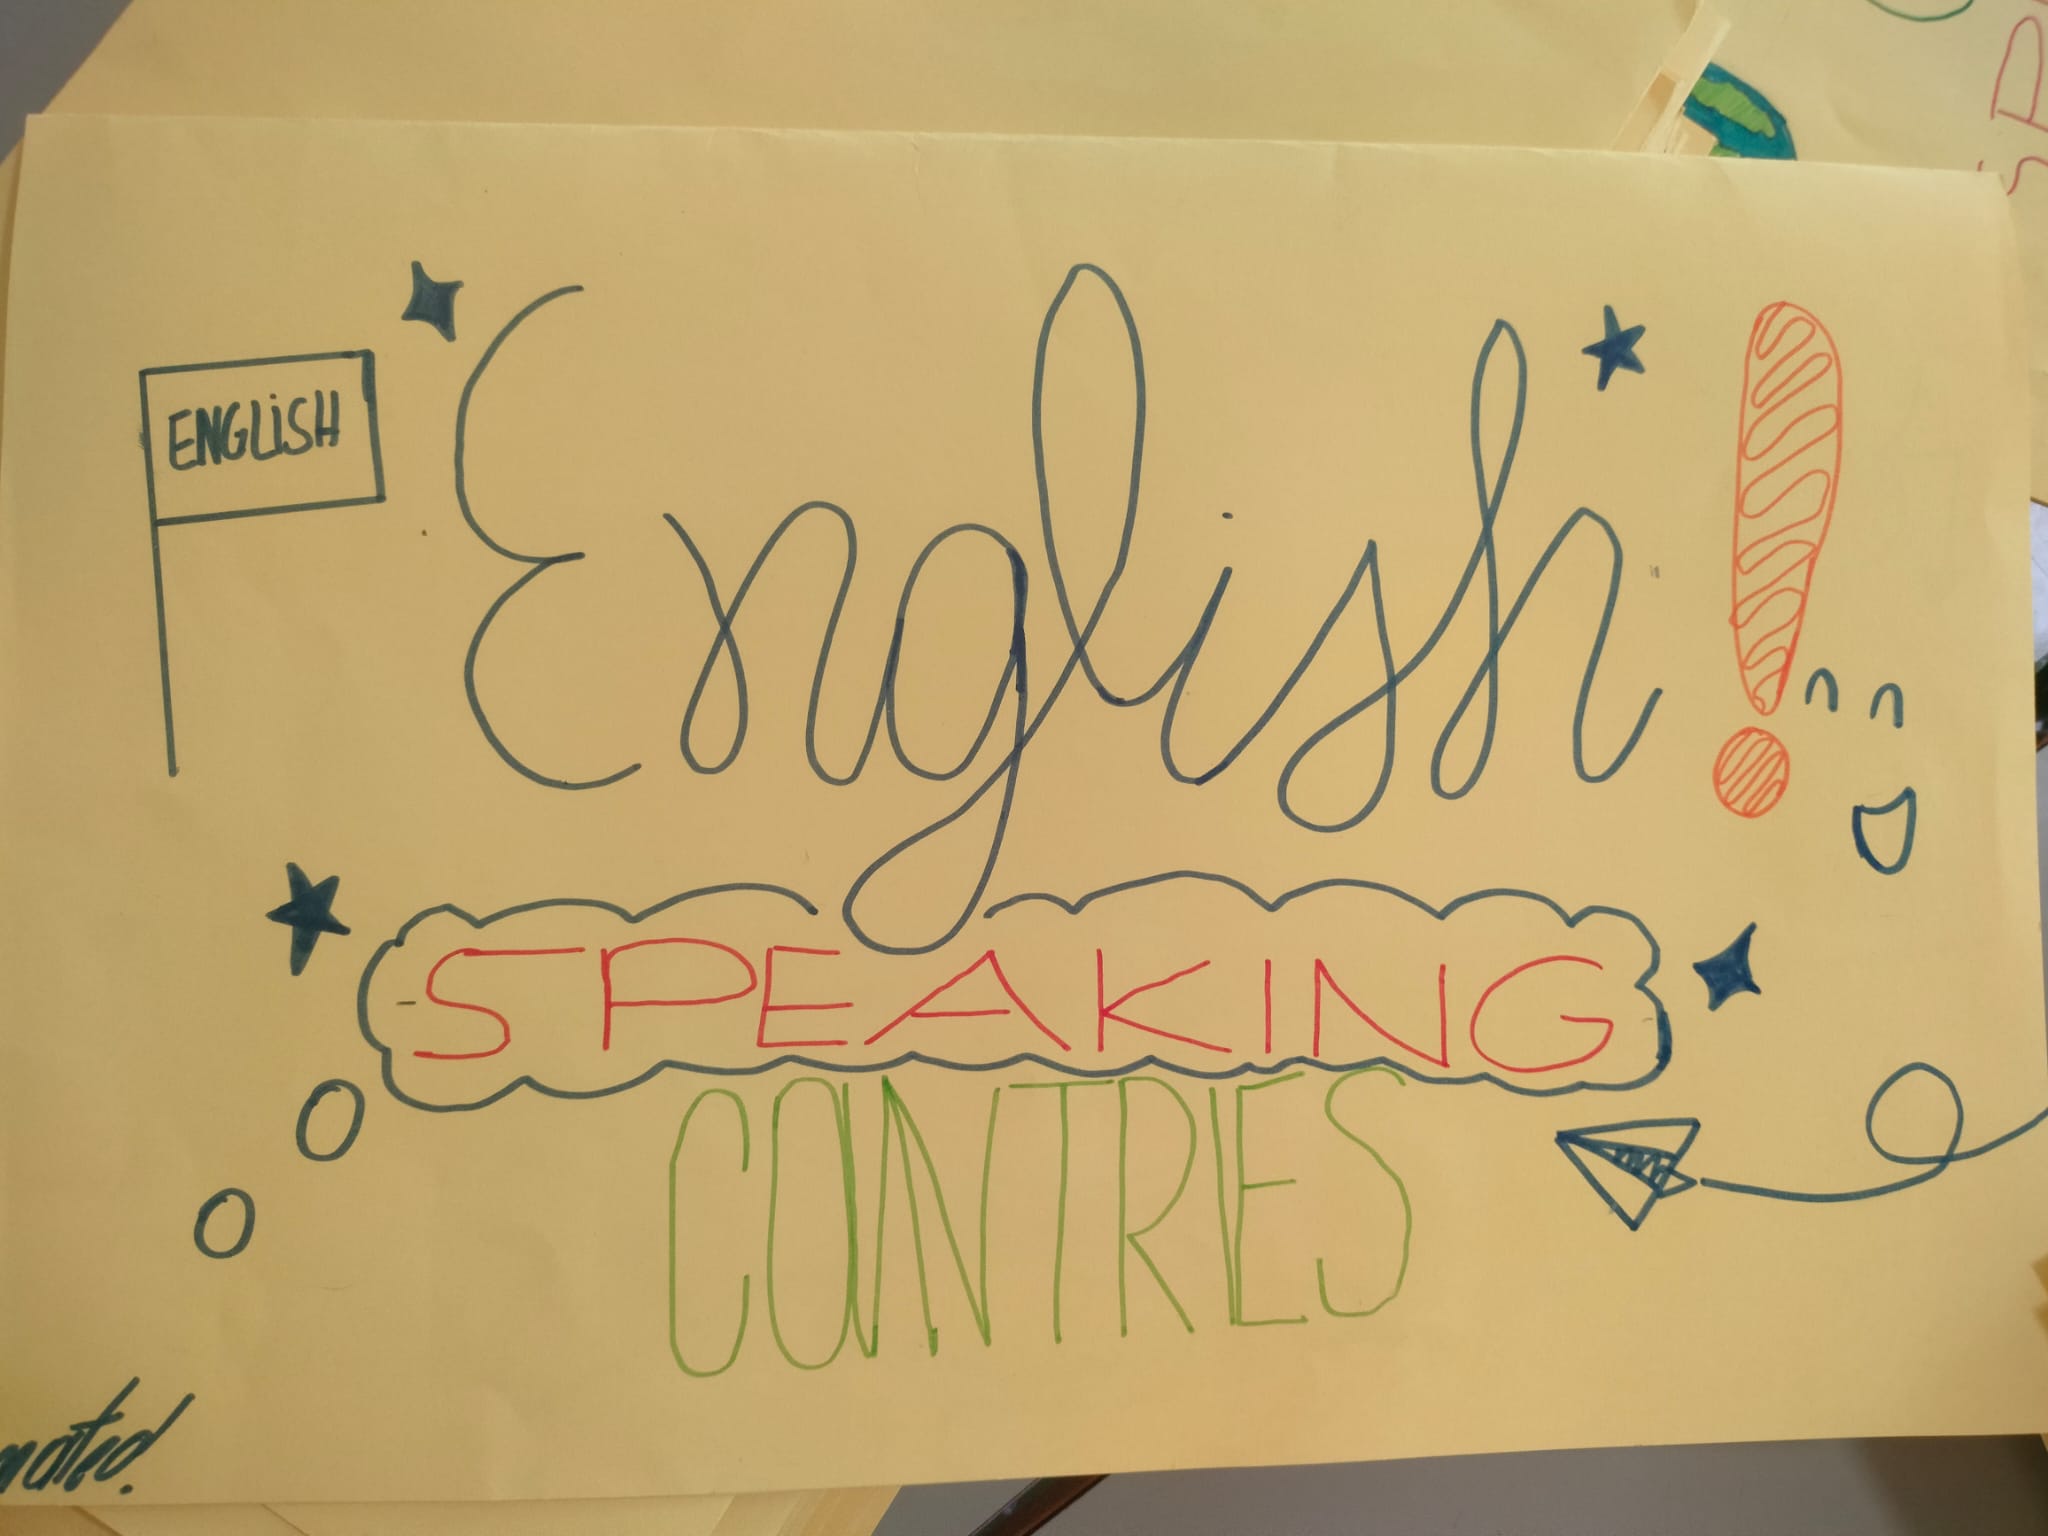 ENGLiSH
English!
SPEAKING
CONTRIES